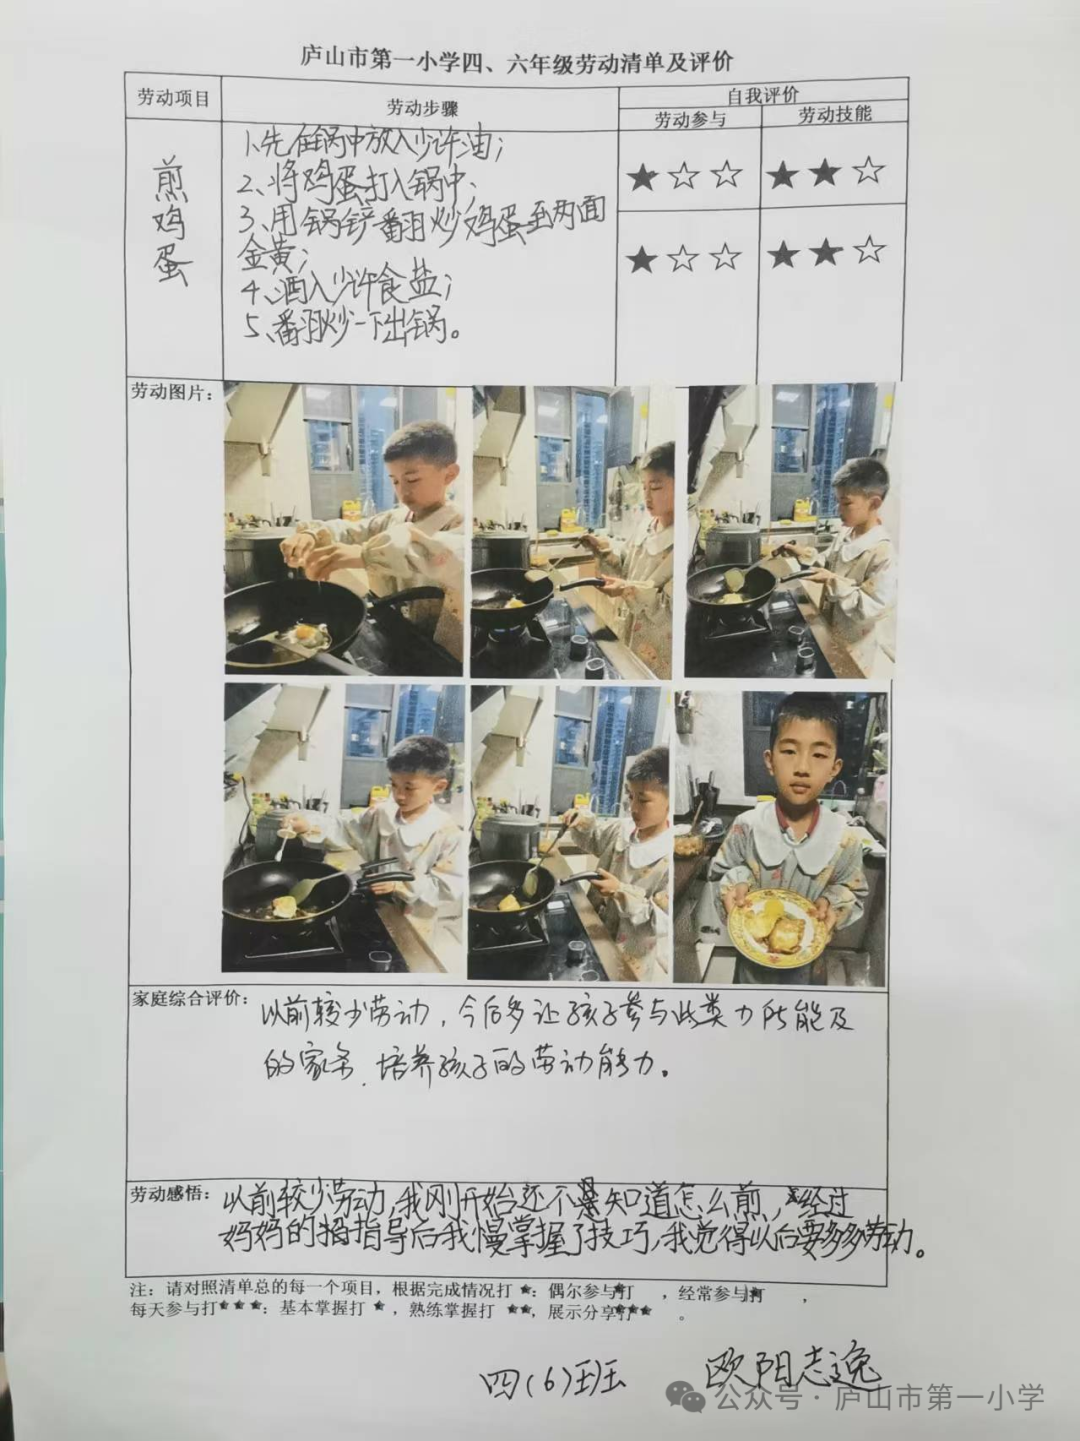 庐山市第一小学四、六年级劳动清单及评价
劳动项目
劳动步骤
自我评价
劳动参与
劳动技能
煎
鸡
蛋
1、先在锅中放入少许油；
2、将鸡蛋打入锅中；
3、用锅铲翻炒鸡蛋至两面
金黄；
4、洒入少许食盐；
5、翻炒一下出锅。
★☆☆
★★☆
★☆☆
★★☆
劳动图片：
家庭综合评价：
以前较少劳动，今后多让孩子参与此类力所能及
的家务，培养孩子的劳动能力。
劳动感悟：
以前较少劳动，我刚开始还不是知道怎么煎，经过
妈妈的指导后我慢掌握了技巧，我觉得以后要多多劳动。
注：请对照清单总的每一个项目，根据完成情况打★：偶尔参与打 ，经常参与打 ，
每天参与打★★★；基本掌握打★，熟练掌握打★★，展示分享打★★★。
四(6)班
欧阳志逸
公众号·庐山市第一小学